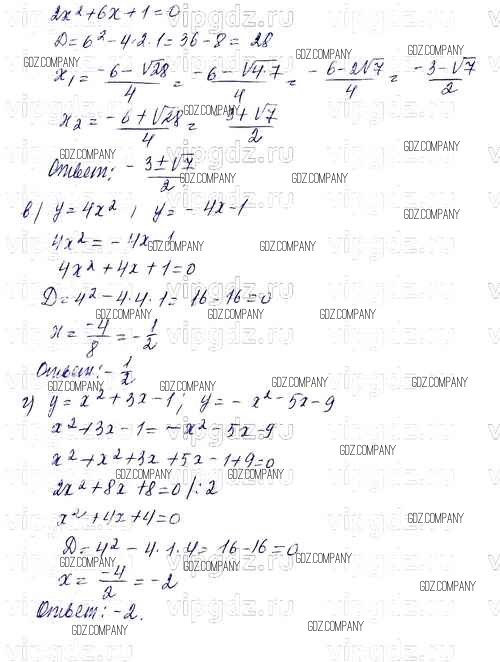 2x²+6x+1=0
D=6²-4·2·1=36-8=28
x₁=(-6-√28)/4=(-6-√4·7)/4=(-6-2√7)/4=(-3-√7)/2
x₂=(-6+√28)/4=(-3+√7)/2
Ответ: -3±√7/2
в) y=4x², y=-4x-1
4x²=-4x-1
4x²+4x+1=0
D=4²-4·4·1=16-16=0
x=-4/8=-1/2
Ответ: -1/2
г) y=x²+3x-1; y=-x²-5x-9
x²+3x-1=-x²-5x-9
x²+x²+3x+5x-1+9=0
2x²+8x+8=0/:2
x²+4x+4=0
D=4²-4·1·4=16-16=0
x=-4/2=-2
Ответ: -2.